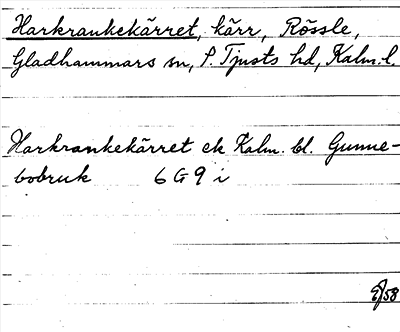 Harkrankekärret, kärr, Rössle,
Gladhammars sn, S. Tjusts hd, Kalm. l.
Harkrankekärret ek Kalm. bl. Gunne-
bobruk 6 G 9 i
58